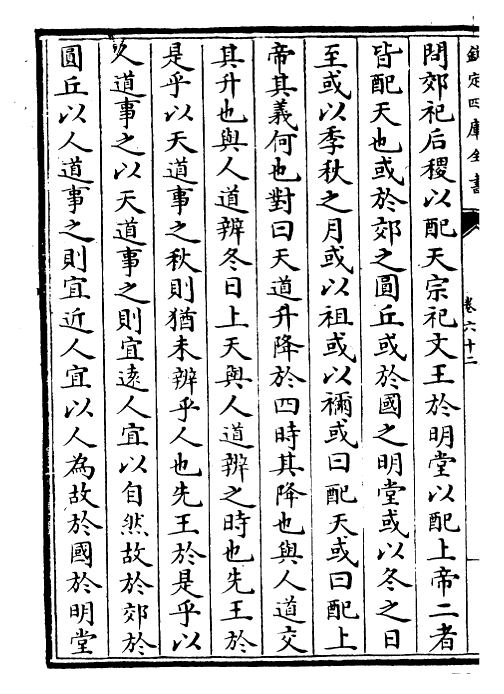 欽定四庫全書
卷六十二
問郊祀后稷以配天宗祀文王於明堂以配上帝二者
皆配天也或於郊之圓丘或於國之明堂或以冬之日
至或以季秋之月或以祖或以禰或曰配天或曰配上
帝其義何也對曰天道升降於四時其降也與人道交
其升也與人道辨冬日上天與人道辨之時也先王於
是乎以天道事之秋則猶未辨乎人也先王於是乎以
人道事之以天道事之則宜遠人宜以自然故於郊於
圓丘以人道事之則宜近人宜以人為故於國於明堂